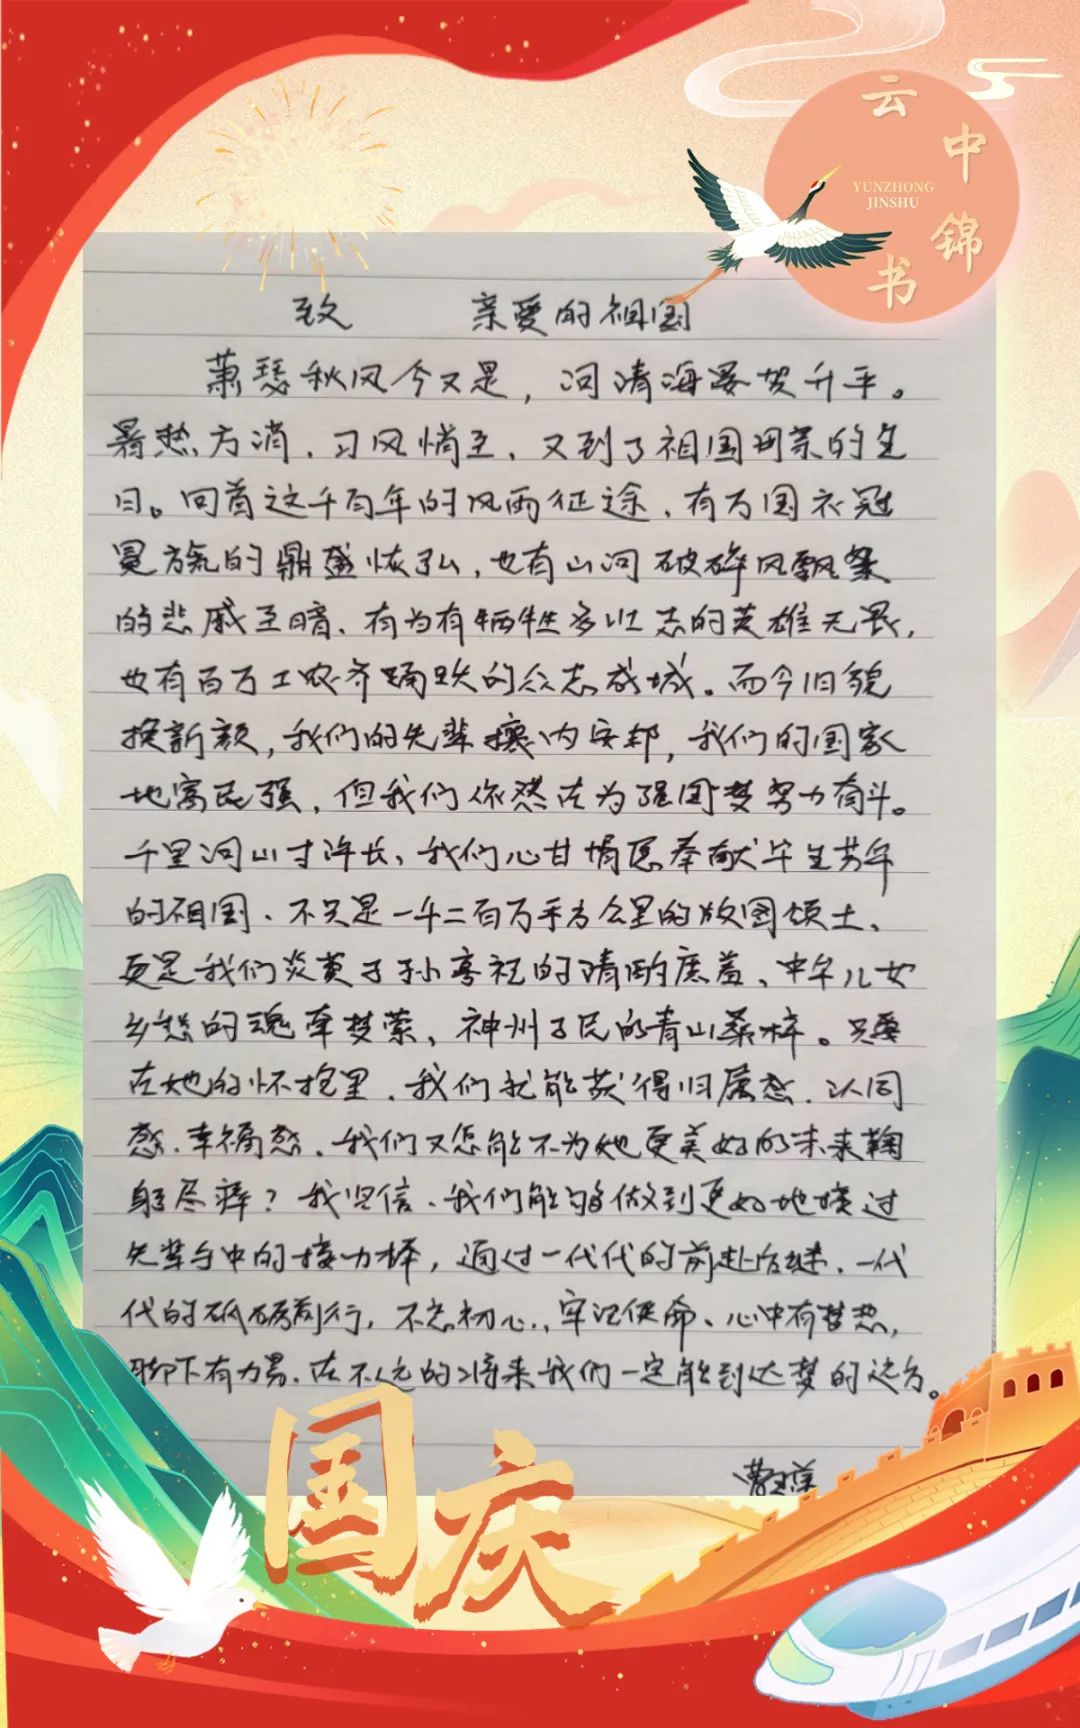 云中锦书
YUNZHONG
JINSHU
致 亲爱的祖国
萧瑟秋风今又是，河清海晏贺升平。
暑热方消、习风悄至、又到了祖国母亲的生
日。回首这千百年的风雨征途、有万国衣冠
冕旒的鼎盛恢弘，也有山河破碎风飘絮
的悲戚至暗、有为有牺牲多壮志的英雄无畏，
也有百万工农齐踊跃的众志成城。而今旧貌
换新颜，我们的先辈攘内安邦，我们的国家
地富民强，但我们依然在为强国梦努力奋斗。
千里河山寸许长、我们心甘情愿奉献毕生芳华
的祖国、不只是一千二百万平方公里的版图烦土、
更是我们炎黄子孙享祀的清酌庶羞、中华儿女
乡愁的魂牵梦萦、神州子民的青山桑梓。只要
在她的怀抱里、我们就能获得归属感、认同
感、幸福感、我们又怎能不为她更美好的未来鞠
躬尽瘁？我坚信、我们能够做到更好地接过
先辈手中的接力棒，通过一代代的前赴后继、一代
代的砥砺前行，不忘初心、牢记使命、心中有梦想，
脚下有力量、在不远的将来我们一定能到达梦的远方。
国庆